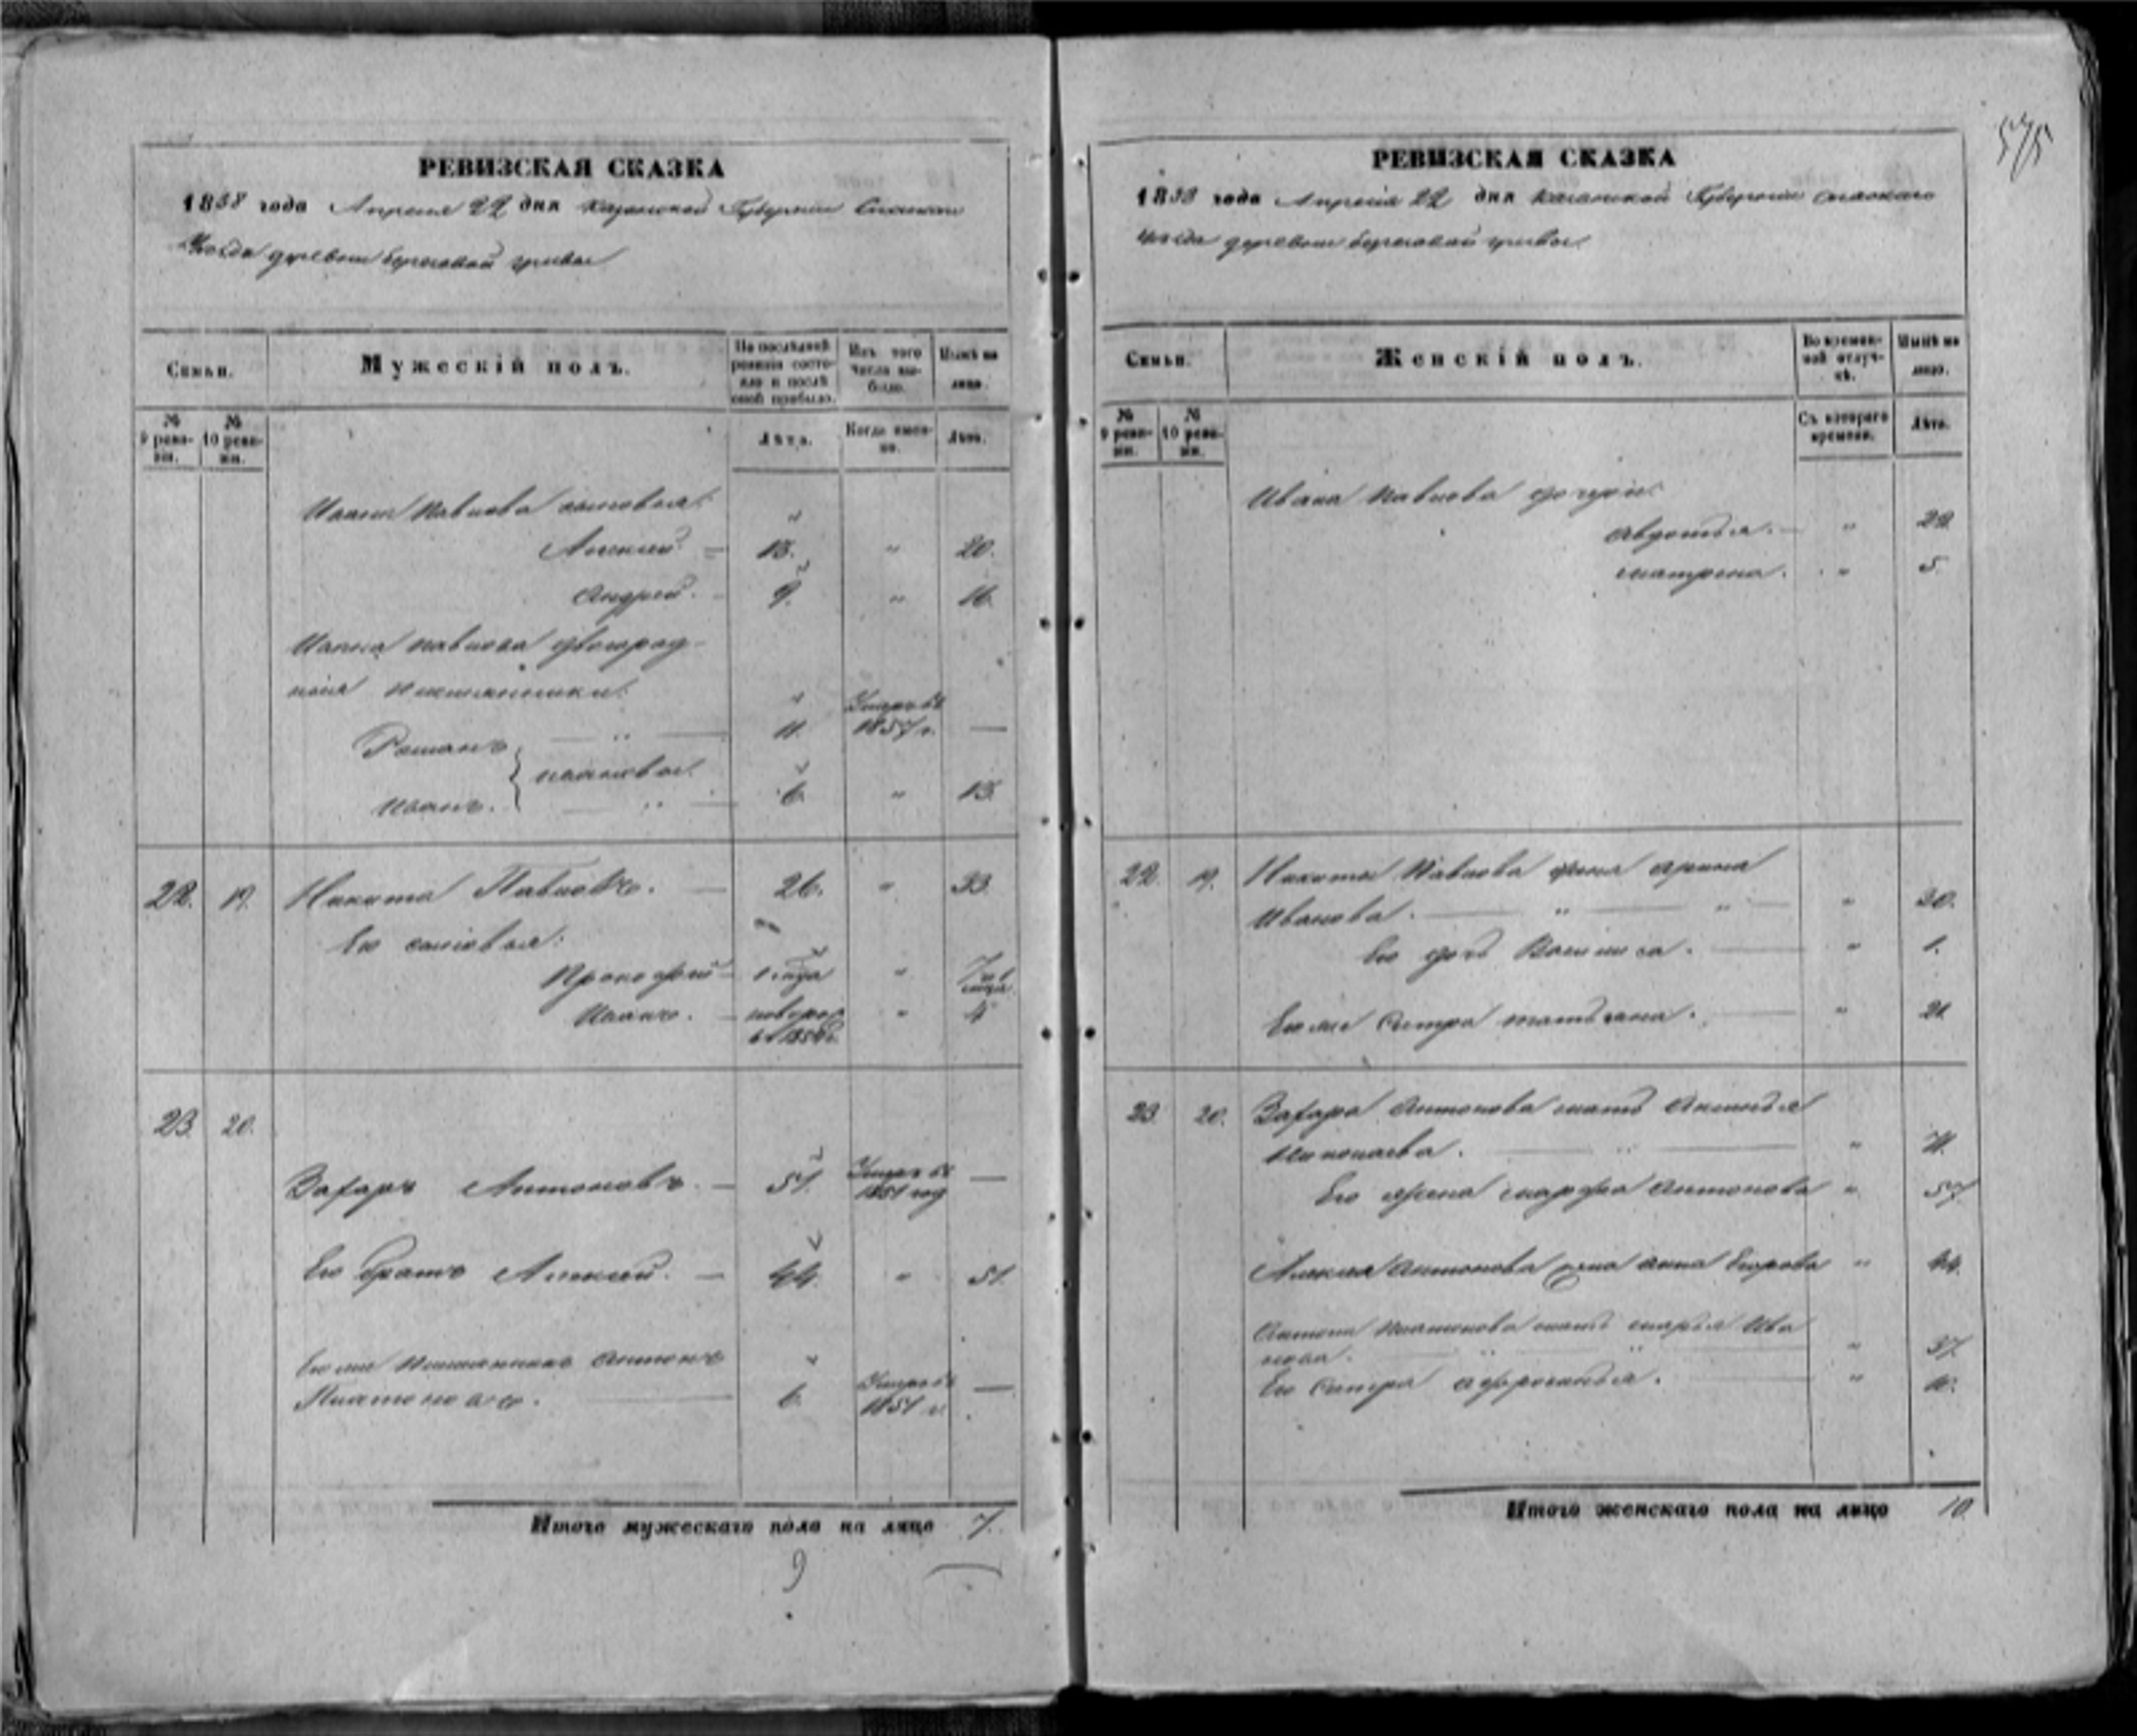 575
РЕВИЗСКАЯ СКАЗКА
1858 года Апреля 22 дня Казанской Губернии Спаскаго
Уезда деревни береговой гривы
Семьи.
Мужескій полъ.
По послѣдней ревизіи состояло и послѣ оной прибыло.
Изъ того числа выбыло.
Нынѣ на лицо.
№ 9 ревизіи.
№ 10 ревизіи.
Лѣта.
Когда именно.
Лѣта.
Ивана Павлова сыновья:
Алексей. 13. " 20.
Андрей. 9. " 16.
Ивана Павлова двоюрод-
ныя племянники:
Романъ " 11. Умеръ въ 1857 г. —
Ивановы.
Иванъ. " 6. " 13.
22. 19. Никита Павловъ. — 26. " 33.
Его сыновья:
Прокофий 1 года " 7
Иванъ. — новорож " 4
23. 20.
Захаръ Антоновъ. — 51. Умеръ въ 1851 год —
Его братъ Алексей. — 44. " 51.
Его же племянникъ Антонъ
Платоновъ. 6. Умеръ въ 1851 г. —
Итого мужескаго пола на лицо 7.
9
РЕВИЗСКАЯ СКАЗКА
1858 года Апреля 22 дня Казанской Губернии Спаскаго
Уезда деревни береговой гривы.
Семьи.
Женскій полъ.
Во временной отлучкѣ.
Нынѣ на лицо.
№ 9 ревизіи.
№ 10 ревизіи.
Съ котораго времени.
Лѣта.
Ивана Павлова дочери:
Авдотья. — " 22.
Матрена. " 5.
22. 19. Никиты Павлова жена Арина
Иванова. " " " 30.
Его дочь Василиса. " 1.
Его же сестра Татьяна. " 21.
23. 20. Захара Антонова мать
Николаева. " " 71.
Его жена Марфа Антонова " 57.
Алексея Антонова жена Анна Егорова " 44.
Антона Платонова мать Марья Ива
нова. " " " 37.
Его сестра Афросинья. "
Итого женскаго пола на лицо 10